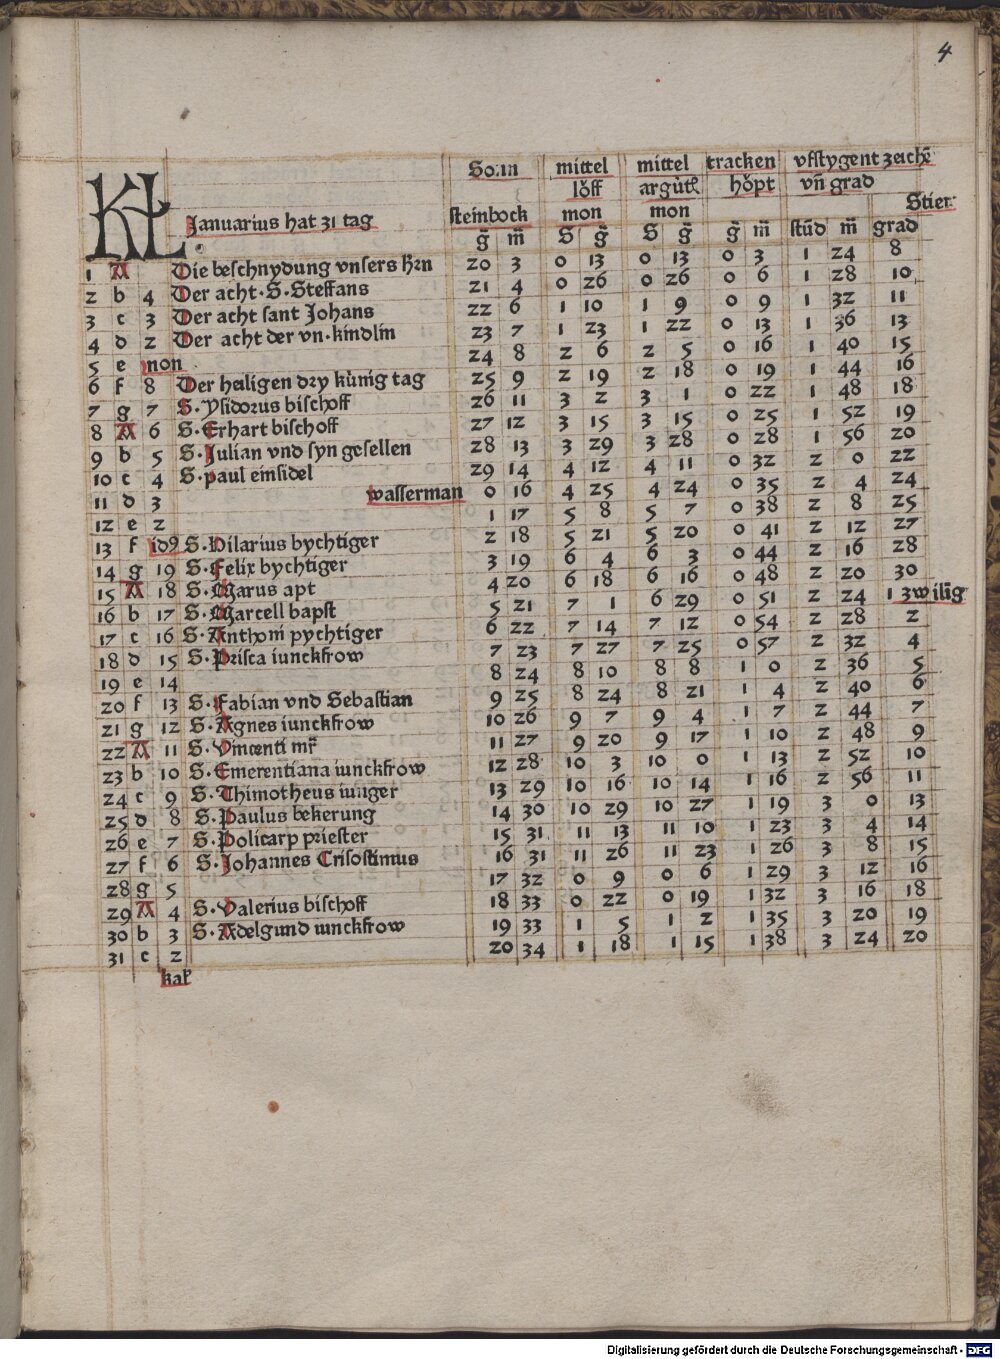 4
So:in mittel mittel tracken vfstygent zeichē
löff argůtl höpt vn̄ grad
KL Januarius hat 31 tag steinbock mon mon Stier
g̃ m̃ S g̃ S g̃ g̃ m̃ stūd m̃ grad
1 A Die beschnydung vnsers hrn 20 3 0 13 0 13 0 3 1 24 8
2 b 4 Der acht · S · Steffans 21 4 0 26 0 26 0 6 1 28 10
3 c 3 Der acht sant Johans 22 6 1 10 1 9 0 9 1 32 11
4 d 2 Der acht der vn · kindlin 23 7 1 23 1 22 0 13 1 36 13
5 e non 24 8 2 6 2 5 0 16 1 40 15
6 f 8 Der heiligen dry künig tag 25 9 2 19 2 18 0 19 1 44 16
7 g 7 S · Ysidorus bischoff 26 11 3 2 3 1 0 22 1 48 18
8 A 6 S · Erhart bischoff 27 12 3 15 3 15 0 25 1 52 19
9 b 5 S · Julian vnd syn gesellen 28 13 3 29 3 28 0 28 1 56 20
10 c 4 S · paul einsidel 29 14 4 12 4 11 0 32 2 0 22
11 d 3 wasserman 0 16 4 25 4 24 0 35 2 4 24
12 e 2 1 17 5 8 5 7 0 38 2 8 25
13 f id9 S · Hilarius bychtiger 2 18 5 21 5 20 0 41 2 12 27
14 g 19 S · Felix bychtiger 3 19 6 4 6 3 0 44 2 16 28
15 A 18 S · Marus apt 4 20 6 18 6 16 0 48 2 20 30
16 b 17 S · Marcell bapst 5 21 7 1 6 29 0 51 2 24 1 zwilīg
17 c 16 S · Anthoni pychtiger 6 22 7 14 7 12 0 54 2 28 2
18 d 15 S · Prisca iunckfrow 7 23 7 27 7 25 0 57 2 32 4
19 e 14 8 24 8 10 8 8 1 0 2 36 5
20 f 13 S · Fabian vnd Sebastian 9 25 8 24 8 21 1 4 2 40 6
21 g 12 S · Agnes iunckfrow 10 26 9 7 9 4 1 7 2 44 7
22 A 11 S · Vincenti mr̃ 11 27 9 20 9 17 1 10 2 48 9
23 b 10 S · Emerentiana iunckfrow 12 28 10 3 10 0 1 13 2 52 10
24 c 9 S · Thimotheus iunger 13 29 10 16 10 14 1 16 2 56 11
25 d 8 S · Paulus bekerung 14 30 10 29 10 27 1 19 3 0 13
26 e 7 S · Policarp priester 15 31 11 13 11 10 1 23 3 4 14
27 f 6 S · Johannes Crisostimus 16 31 11 26 11 23 1 26 3 8 15
28 g 5 17 32 0 9 0 6 1 29 3 12 16
29 A 4 S · Valerius bischoff 18 33 0 22 0 19 1 32 3 16 18
30 b 3 S · Adelgund iunckfrow 19 33 1 5 1 2 1 35 3 20 19
31 c 2 20 34 1 18 1 15 1 38 3 24 20
kal
Digitalisierung gefördert durch die Deutsche Forschungsgemeinschaft - DFG